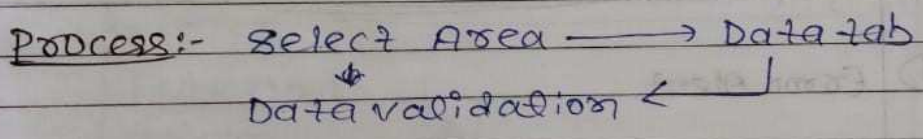 Process:- Select Area → Data tab
Data validation